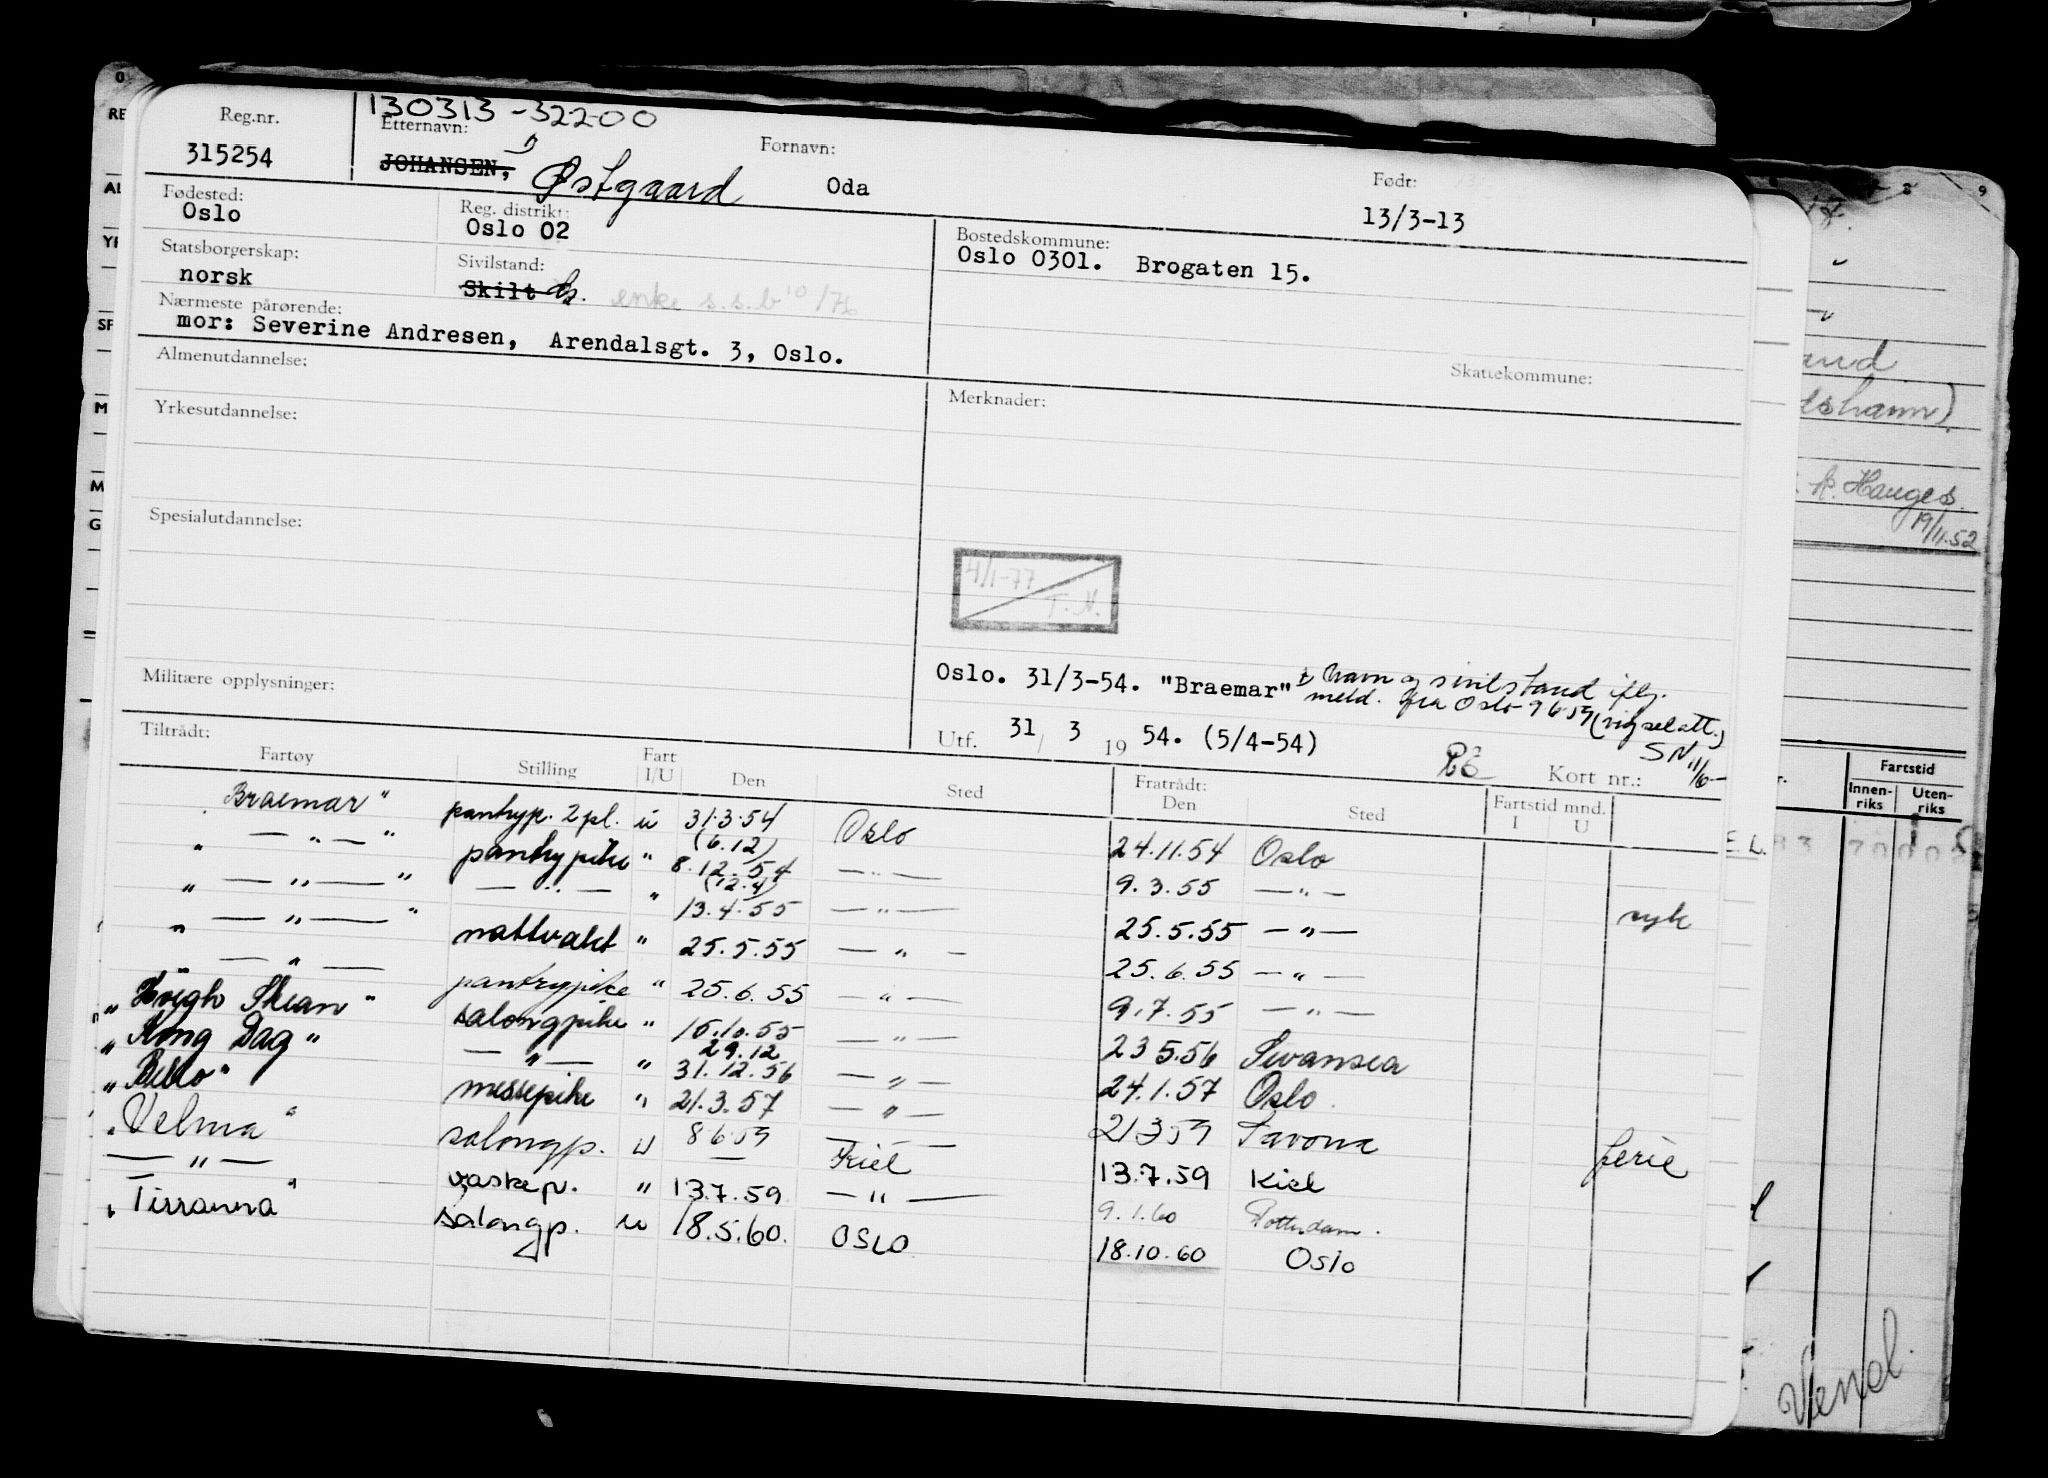 130313-32200
Reg.nr. Etternavn: Fornavn: Født:
315254 JOHANSEN, Østgaard Oda 13/3-13
Fødested: Reg. distrikt: Bostedskommune:
Oslo Oslo 02 Oslo 0301. Brogaten 15.
Statsborgerskap: Sivilstand:
norsk Skilt G. enke s.s.b 10/76
Nærmeste pårørende:
mor: Severine Andresen, Arendalsgt. 3, Oslo.
Skattekommune:
Almenutdannelse: Merknader:
Yrkesutdannelse:
Spesialutdannelse:
4/1-77
T.N.
Militære opplysninger:
Oslo. 31/3-54. "Braemar" navn og sivilstand iflg.
meld. fra Oslo 9 6 59 (vigselatt.)
SN 11/6-
Utf. 31/ 3 1954. (5/4-54) Kort nr.:
Tiltrådt: Fratrådt:
Fartøy Stilling Fart I/U Den Sted Den Sted Fartstid mnd. I U
Braemar" pantryp. 2 pl. u 31.3.54 Oslo 24.11.54 Oslo
" — " — " pantrypike " (6.12) 8.12.54 — " — 9.3.55 — " — syk
" — " — " — " — " (12.4) 13.4.55 — " — 25.5.55 — " —
" — " — " nattvakt " 25.5.55 — " — 25.6.55 — " —
" — " — pantrypike " 25.6.55 — " — 9.7.55 — " —
"Høegh Skean" salongpike " 15.10.55 — " — 23 5.56 Swansea
"Kong Dag" — " — " 29.12 31.12.56 — " — 24.1.57 Oslo
"Bello" messepike " 21.3.57 — " — 21 3 59 Savona ferie
"Velma" salongp. u 8 6 59 Kiel 13.7.59 Kiel
— " — vaskep. " 13.7.59 — " — 9.1.60 Rotterdam.
"Tirranna" salongp. u 18.5.60. OSLO 18.10.60 Oslo
RE
SF
M
M
G
8 9
and
h. Hauges.
19/11.52
Fartstid
Innen-
riks
Uten-
riks
E. L.
Vend.